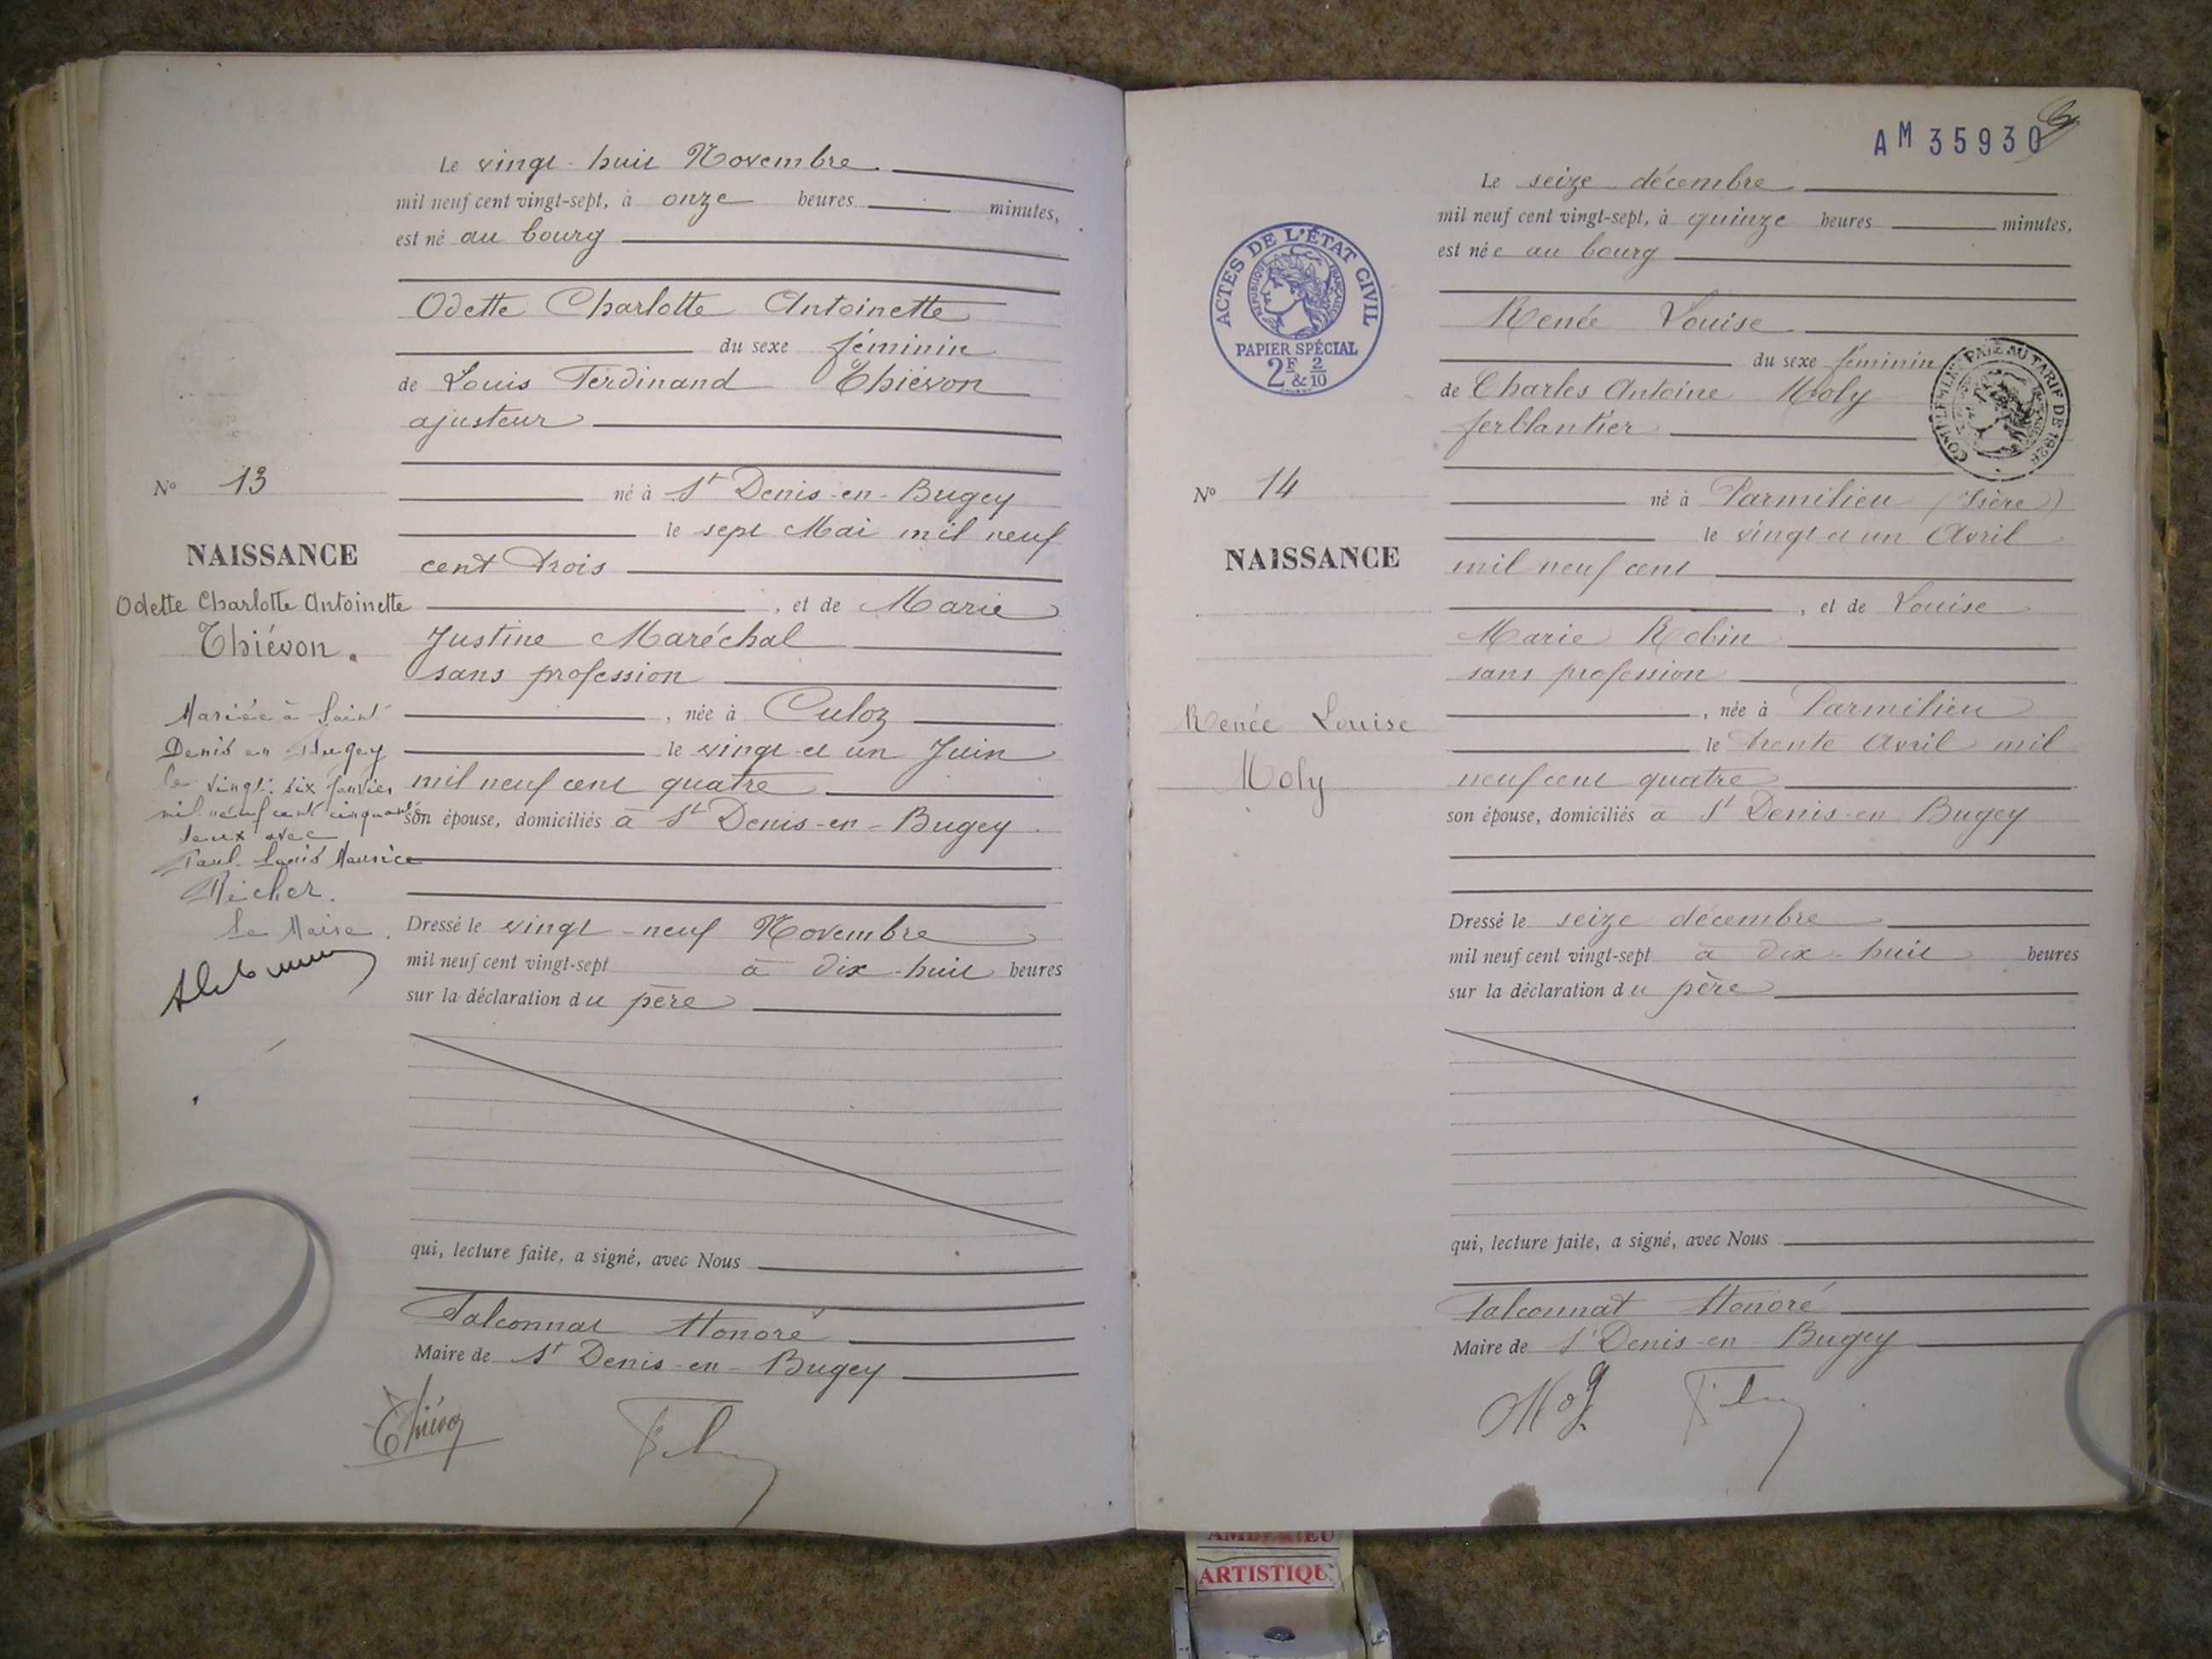 Le vingt-huit Novembre
mil neuf cent vingt-sept, à onze heures minutes,
est né au bourg
Odette Charlotte Antoinette
du sexe féminin
de Louis Ferdinand Thiévon
ajusteur
né à St Denis-en-Bugey
le sept Mai mil neuf
cent trois
, et de Marie
Justine Maréchal
sans profession
, née à Culoz
le vingt et un Juin
mil neuf cent quatre
son épouse, domiciliés à St Denis-en-Bugey.
Dressé le vingt-neuf Novembre
mil neuf cent vingt-sept à dix-huit heures
sur la déclaration du père
qui, lecture faite, a signé, avec Nous
Falconnat Honoré
Maire de St Denis-en-Bugey
No 13
NAISSANCE
Odette Charlotte Antoinette
Thiévon.
Mariée à Saint
Denis en Bugey
le vingt-six Janvier
mil neuf cent cinquante
deux avec
Paul Louis Maurice
Richer.
Le Maire.
AM 35930
Le seize décembre
mil neuf cent vingt-sept, à quinze heures minutes,
est née au bourg
Renée Louise
du sexe féminin
de Charles Antoine Moly
ferblantier
né à Parmilieu (Isère)
le vingt et un Avril
mil neuf cent
, et de Louise
Marie Robin
sans profession
, née à Parmilieu
le trente Avril mil
neuf cent quatre
son épouse, domiciliés à St Denis-en Bugey
Dressé le seize décembre
mil neuf cent vingt-sept à dix-huit heures
sur la déclaration du père
qui, lecture faite, a signé, avec Nous
Falconnat Honoré
Maire de St Denis-en Bugey
No 14
NAISSANCE
Renée Louise
Moly
ACTES DE L'ÉTAT CIVIL
RÉPUBLIQUE FRANÇAISE
PAPIER SPÉCIAL
2F & 2/10
PAYÉ AU TARIF DE 1926
ARTISTIQU